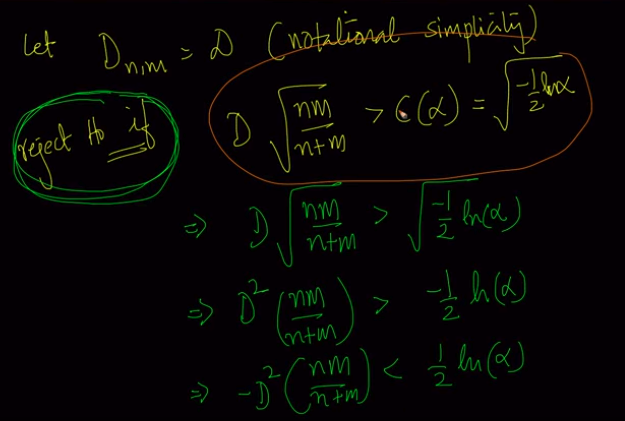 Let D_{n,m} = D (notational simplicity)
reject H₀ if D √(nm/(n+m)) > C(α) = √(-1/2 lnα)
⇒ D √(nm/(n+m)) > √(-1/2 ln(α))
⇒ D² (nm/(n+m)) > -1/2 ln(α)
⇒ -D² (nm/(n+m)) < 1/2 ln(α)